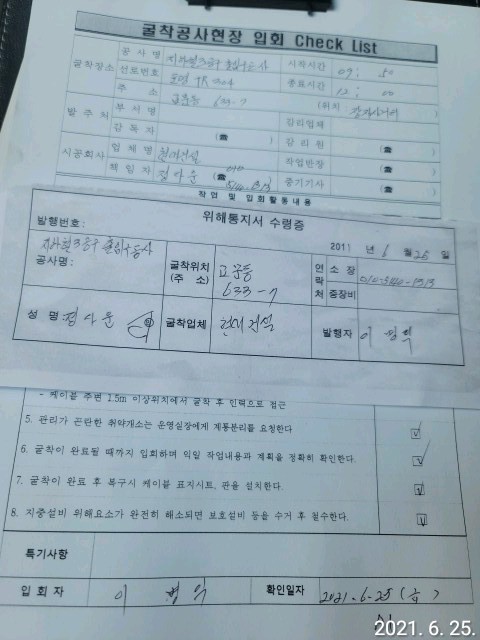 굴착공사현장 입회 Check List
굴착장소
공 사 명
시작시간 09 : 50
선로번호
종료시간 12 : 00
주 소 교문동 633-7 (위치 )
발 주 처
부 서 명
감리업체
감 독 자 (☎ )
감 리 원 (☎ )
시공회사
업 체 명 현대건설
작업반장 (☎ )
책 임 자 (☎ )
중기기사 (☎ )
작업 및 입회활동내용
위해통지서 수령증
발행번호:
2011 년 6 월 25 일
공사명:
굴착위치
(주 소)
633-7
연락처
소 장
중장비
성 명
굴착업체 현대건설
발행자 이
- 케이블 주변 1.5m 이상위치에서 굴착 후 인력으로 접근
5. 관리가 곤란한 취약개소는 운영실장에게 계통분리를 요청한다
6. 굴착이 완료될 때까지 입회하며 익일 작업내용과 계획을 정확히 확인한다.
7. 굴착이 완료 후 복구시 케이블 표지시트, 판을 설치한다.
8. 지중설비 위해요소가 완전히 해소되면 보호설비 등을 수거 후 철수한다.
특기사항
입 회 자 이
확인일자 2021.6.25 (금)
2021. 6. 25.